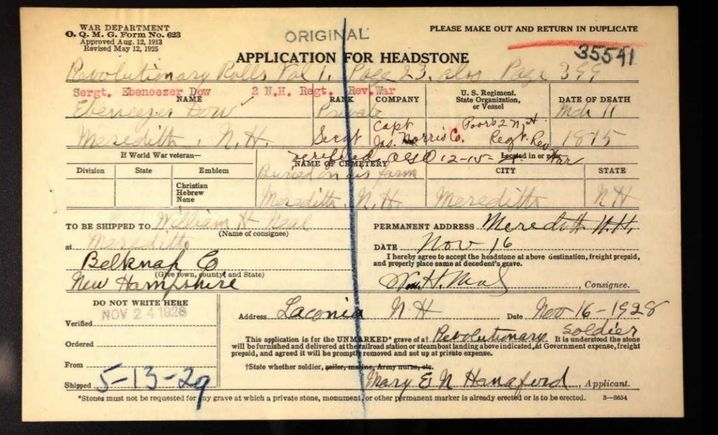 WAR DEPARTMENT
O. Q. M. G. Form No. 623
Approved Aug. 12, 1913
Revised May 12, 1925
ORIGINAL
PLEASE MAKE OUT AND RETURN IN DUPLICATE
35541
APPLICATION FOR HEADSTONE
Revolutionary Rolls Vol 1. Page 23. also Page 399
Sergt. Ebeneezer Dow 2 N.H. Regt. Rev.War
NAME RANK COMPANY U. S. Regiment, State Organization, or Vessel DATE OF DEATH
Ebenezer Dow Private Mch 11
Meredith, N. H. Sergt Capt Jas. Norris Co. Poors 2 N.H. Regt. Rev War 1815
If World War veteran— verified NAME OF CEMETERY Located in or
Division State Emblem CITY STATE
Buried on his farm
Christian
Hebrew
None
Meredith, N. H Meredith N H
TO BE SHIPPED TO William H Neal
(Name of consignee)
PERMANENT ADDRESS Meredith N.H.
at Meredith
DATE Nov 16
Belknap Co
(Give town, county, and State)
New Hampshire
I hereby agree to accept the headstone at above destination, freight prepaid,
and properly place same at decedent's grave.
Wm. H. Neal Consignee.
DO NOT WRITE HERE
NOV 24 1928
Verified
Ordered
From
Shipped 5-13-29
Address Laconia N H Date Nov 16-1928
This application is for the UNMARKED* grave of a† Revolutionary Soldier It is understood the stone
will be furnished and delivered at the railroad station or steamboat landing above indicated, at Government expense, freight
prepaid, and agreed it will be promptly removed and set up at private expense.
†State whether soldier, sailor, marine, Army nurse, etc.
Mary E N Hanaford Applicant.
*Stones must not be requested for any grave at which a private stone, monument, or other permanent marker is already erected or is to be erected. 3—8654